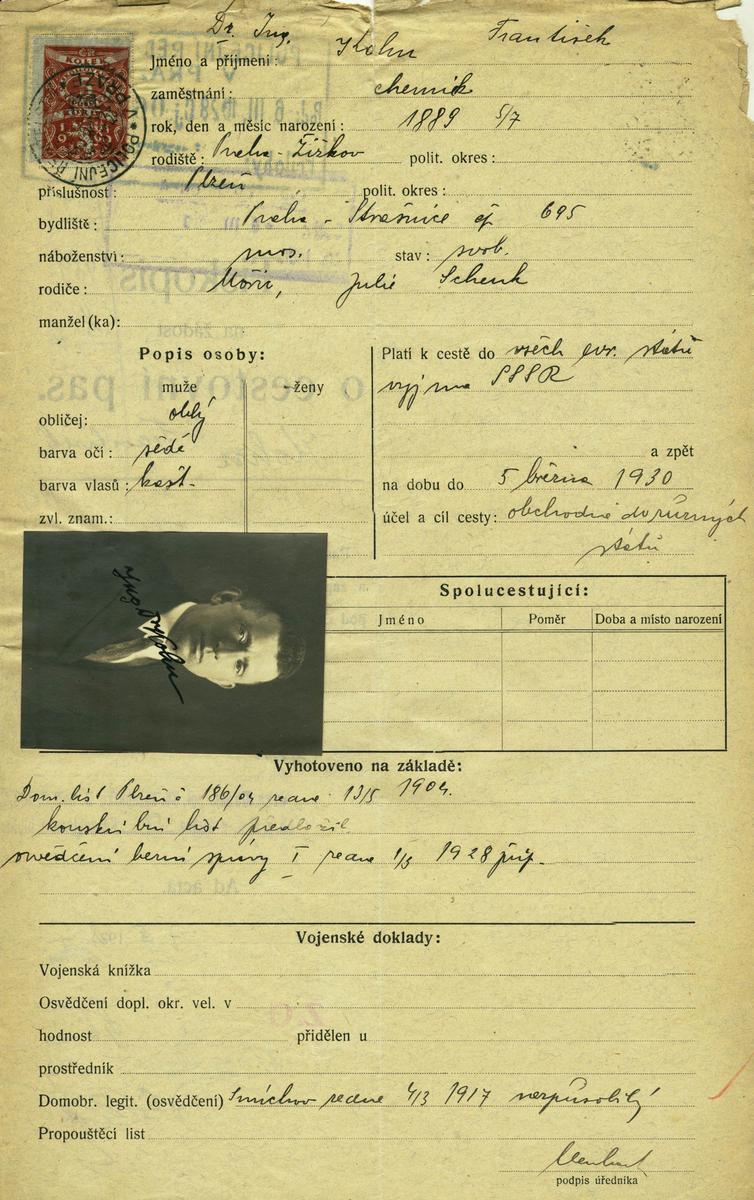 Dr. Ing.
Jméno a příjmení: Kohn František
zaměstnání: chemik
rok, den a měsíc narození: 1889 5/7
rodiště: Praha-Žižkov polit. okres:
příslušnost: Plzeň polit. okres:
bydliště: Praha-Strašnice čp 695
náboženství: mos. stav: svob.
rodiče: Moric, Julie Schenk
manžel(ka):
Popis osoby:
muže ženy
obličej: oblý
barva očí: šedé
barva vlasů: kašt.
zvl. znam.:
Platí k cestě do všech evr. států
vyjma SSSR
a zpět
na dobu do 5 března 1930
účel a cíl cesty: obchodně do různých
států
Ing Dr Kohn
Spolucestující:
Jméno Poměr Doba a místo narození
Vyhotoveno na základě:
Dom. list Plzeň č 186/04 ze dne 13/5 1904.
konskribní list předložil
osvědčení berní správy I ze dne 1/3 1928 přip.
Vojenské doklady:
Vojenská knížka
Osvědčení dopl. okr. vel. v
hodnost přidělen u
prostředník
Domobr. legit. (osvědčení) Smíchov ze dne 4/3 1917 nezpůsobilý
Propouštěcí list
podpis úředníka